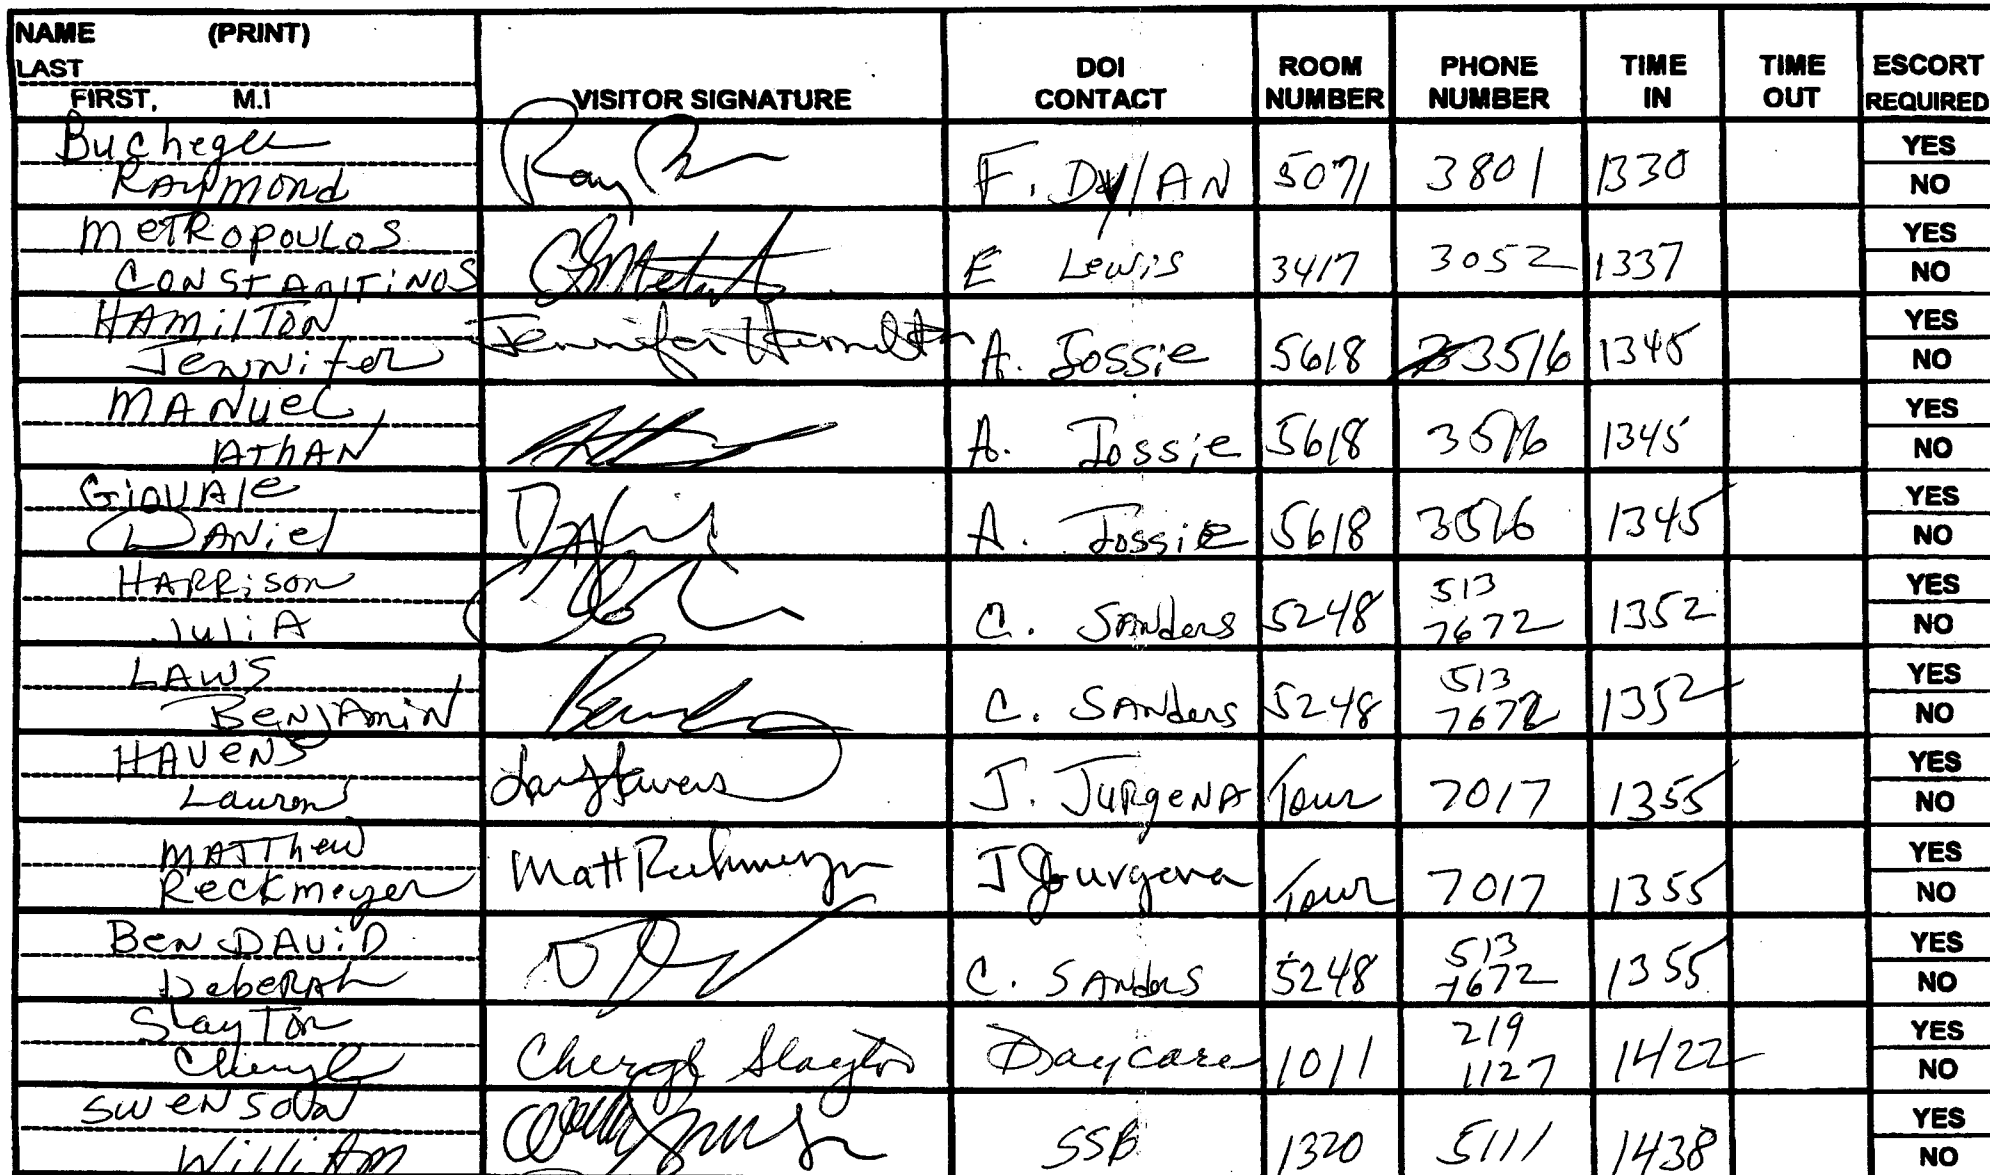 NAME (PRINT)
LAST
FIRST, M.I
VISITOR SIGNATURE
DOI
CONTACT
ROOM
NUMBER
PHONE
NUMBER
TIME
IN
TIME
OUT
ESCORT
REQUIRED
Buchegee
RAYMOND
Ray
F. DYLAN 5071 3801 1330
YES
NO
METROPOULOS
CONSTANTINOS
E Lewis 3417 3052 1337
YES
NO
HAMILTON
Jennifer
Jennifer Hamilton
A. Jossie 5618 3516 1345
YES
NO
MANUEL
ATHAN
A. Jossie 5618 3516 1345
YES
NO
GIOVALE
DANiel
A. Jossie 5618 3516 1345
YES
NO
HARRison
JuliA
C. SANders 5248 513
7672 1352
YES
NO
LAWS
BENJAMIN
C. SANders 5248 513
7672 1352
YES
NO
HAVENS
Lauren
J. JURGENA Tour 7017 1355
YES
NO
MATThew
Reckmeyer
Matt Reckmeyer
J Jurgena Tour 7017 1355
YES
NO
BEN DAVID
Deberah
C. SANders 5248 513
7672 1355
YES
NO
SlayTon
Cheryl
Cheryl Slayton
Daycare 1011 219
1127 1422
YES
NO
SWENSON
WilliAm
SSB 1320 5111 1438
YES
NO